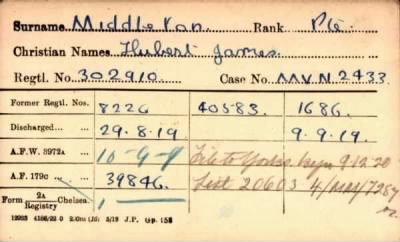 Surname Middleton Rank Pte.
Christian Names Hubert James.
Regtl. No. 302910 Case No. MVN. 2433
Former Regtl. Nos. 8226 40583. 1686.
Discharged... ... 29.8.19. 9.9.19.
A.F.W. 3972A ... 10-9-9 File to 9 12 20
A.F. 179c... ... 39846. List 20603 4/MAY/7287
Form 2A Registry Chelsea.
12933 4156/22 0 2.0m (Jb) 5/19 J.P. Gp. 158